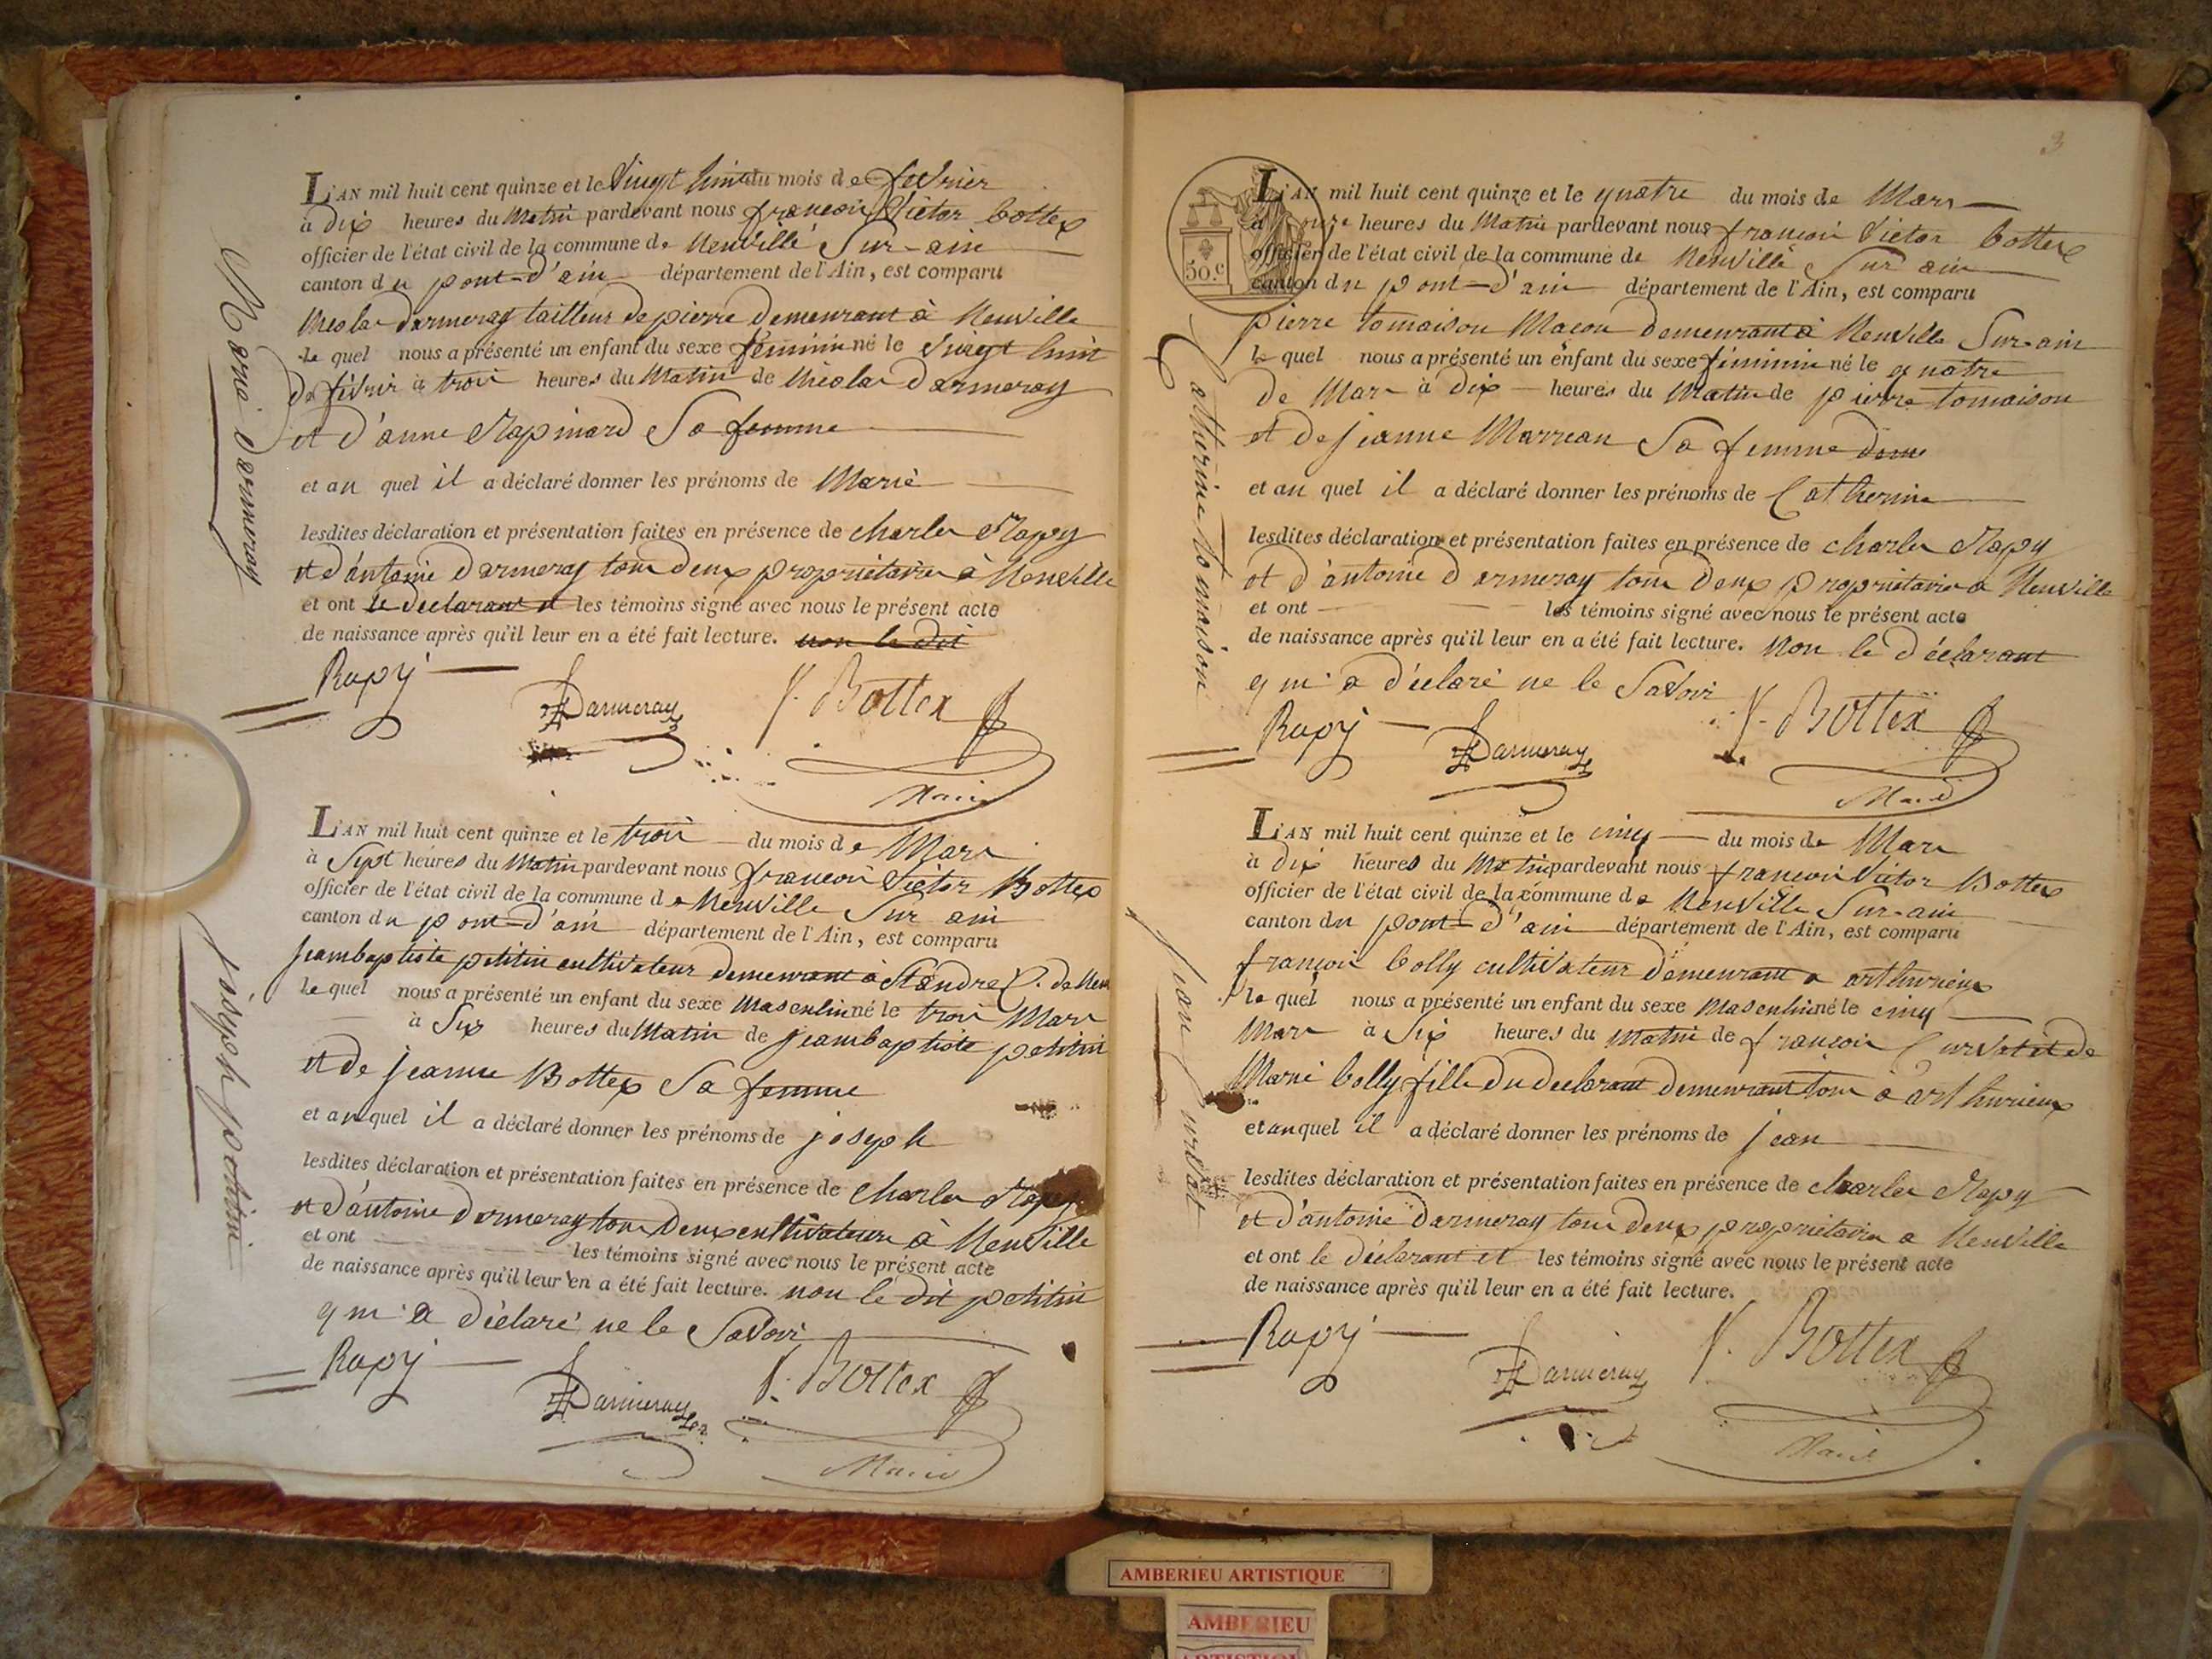 Marie darmeray
L'AN mil huit cent quinze et le vingt huit du mois de fevrier
à dix heures du Matin pardevant nous françois Victor bottex
officier de l'état civil de la commune de Neuville Sur-ain
canton du pont-d'ain département de l'Ain, est comparu
Nicolas darmeray tailleur de pierre demeurant à Neuville
le quel nous a présenté un enfant du sexe féminin né le vingt huit
de février à trois heures du Matin de Nicolas darmeray
et d'anne Rapinard Sa femme
et au quel il a déclaré donner les prénoms de Marie
lesdites déclaration et présentation faites en présence de charles Rapy
et d'antoine darmeray tous deux propriétaires à Neuville
et ont le déclarant et les témoins signé avec nous le présent acte
de naissance après qu'il leur en a été fait lecture. non le dit
Rapy Darmeray V. Bottex
Maire
joseph petitin
L'AN mil huit cent quinze et le trois du mois de Mars
à Sept heures du Matin pardevant nous françois Victor Bottex
officier de l'état civil de la commune de Neuville Sur ain
canton du pont-d'ain département de l'Ain, est comparu
jeambaptiste petitin cultivateur demeurant à St andré C. de Neu
le quel nous a présenté un enfant du sexe Masculin né le trois Mars
à Six heures du Matin de jeambaptiste petitin
et de jeanne Bottex Sa femme
et au quel il a déclaré donner les prénoms de joseph
lesdites déclaration et présentation faites en présence de charles Rapy
et d'antoine darmeray tous deux cultivateurs à Neuville
et ont les témoins signé avec nous le présent acte
de naissance après qu'il leur en a été fait lecture. non le dit petitin
qui a déclaré ne le Savoir
Rapy Darmeray V. Bottex
Maire
3
50.c
Catherine tomaison
L'AN mil huit cent quinze et le quatre du mois de Mars
à onze heures du Matin pardevant nous françois Victor bottex
officier de l'état civil de la commune de Neuville Sur ain
canton du pont-d'ain département de l'Ain, est comparu
pierre tomaison Maçon demeurant à Neuville Sur-ain
le quel nous a présenté un enfant du sexe féminin né le quatre
de Mars à dix heures du Matin de pierre tomaison
et de jeanne Marreau Sa femme
et au quel il a déclaré donner les prénoms de Catherine
lesdites déclaration et présentation faites en présence de charles Rapy
et d'antoine darmeray tous deux propriétaires a Neuville
et ont les témoins signé avec nous le présent acte
de naissance après qu'il leur en a été fait lecture. Non le déclarant
qui a déclaré ne le Savoir
Rapy Darmeray V. Bottex
Maire
jean Curvat
L'AN mil huit cent quinze et le cinq du mois de Mars
à dix heures du Matin pardevant nous françois Victor Bottex
officier de l'état civil de la commune de Neuville Sur-ain
canton du pont-d'ain département de l'Ain, est comparu
françois bolly cultivateur demeurant a arthurieux
le quel nous a présenté un enfant du sexe Masculin né le cinq
Mars à Six heures du Matin de françois Curvat et de
Marie bolly fille du declarant demeurant tous à arthurieux
et au quel il a déclaré donner les prénoms de jean
lesdites déclaration et présentation faites en présence de charles Rapy
et d'antoine darmeray tous deux propriétaires a Neuville
et ont le déclarant et les témoins signé avec nous le présent acte
de naissance après qu'il leur en a été fait lecture.
Rapy Darmeray V. Bottex
Maire
AMBERIEU ARTISTIQUE
AMBERIEU
ARTISTIQUE